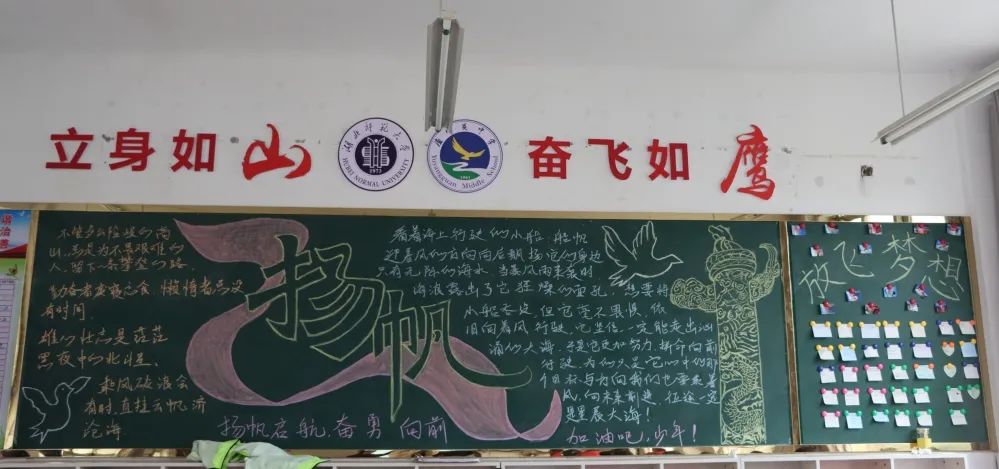 立身如山
奋飞如鹰
湖北师范大学
HUBEI NORMAL UNIVERSITY
1973
Huangguan Middle School
1961
不管多么险峻的高
山,总是为不畏艰难的
人,留下一条攀登的路。
勤奋者废寝忘食 懒惰者总没
有时间
雄心壮志是茫茫
黑夜中的北斗星。
乘风破浪会
有时,直挂云帆济
沧海
扬帆
看着海上行驶的小船,船帆
迎着风的方向向后飘扬,它的身边
只有无际的海水,当暴风雨来袭时
海浪露出了它狂燥的面孔,想要将
小船吞没,但它毫不畏惧,依
旧向着风行驶,它坚信一定能走出汹
涌的大海,于是它更加努力,拼命向前
行驶,
个目标与方向我们也要乘着
风,向未来前进,征途一定
是星辰大海!
扬帆启航,奋勇向前
加油吧,少年!
放飞梦想